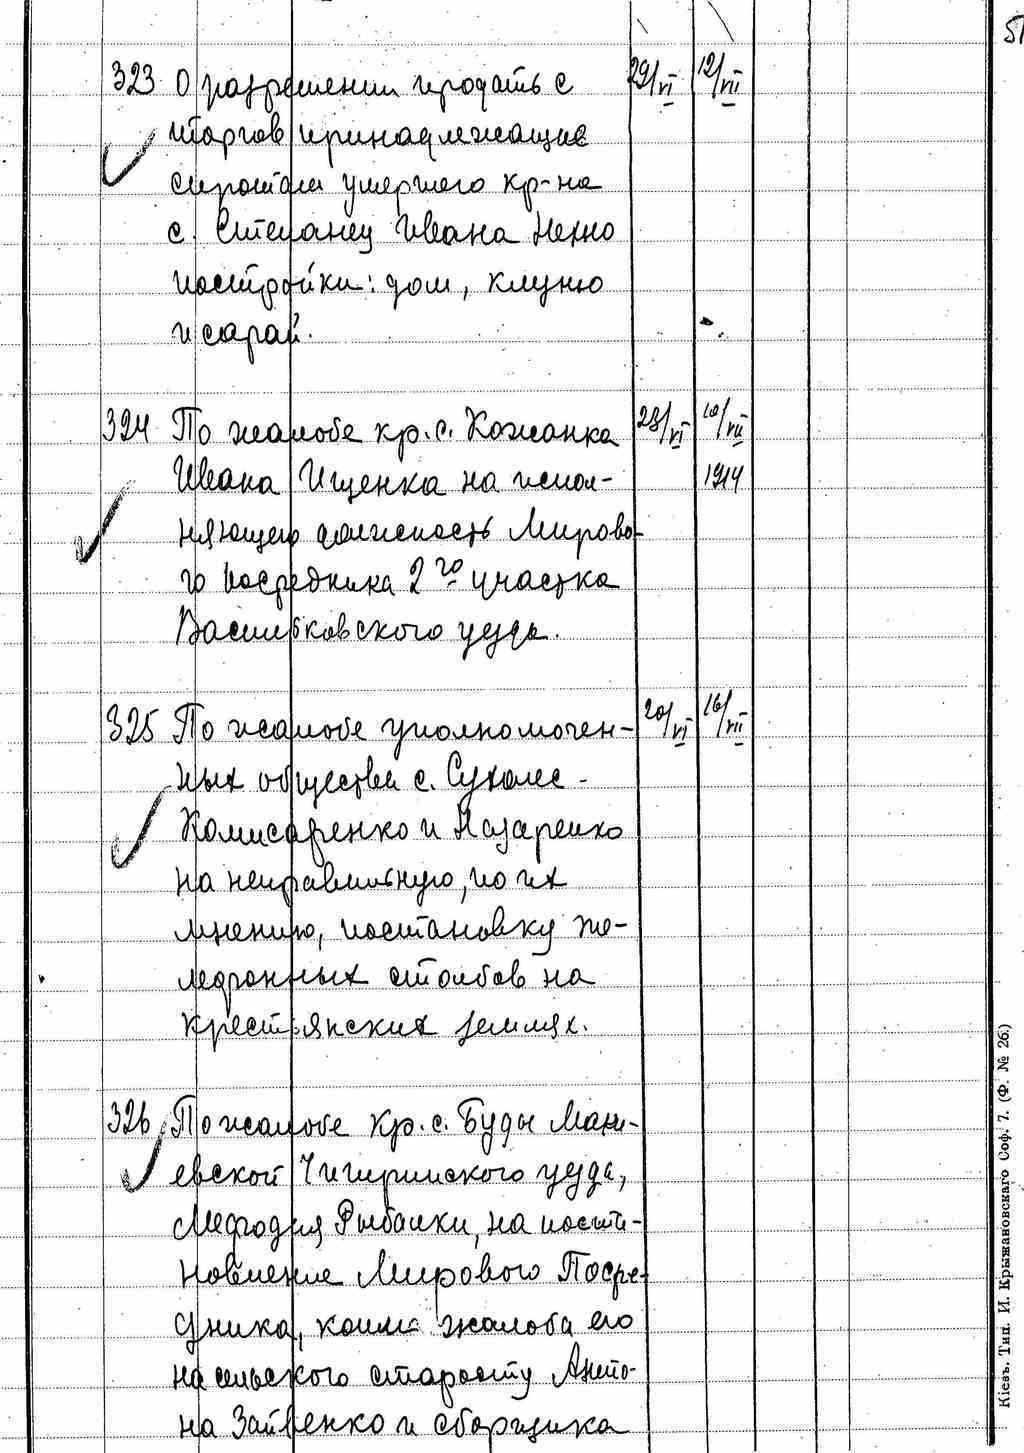 51
323 О разрешении продать с 29/VI 12/VII
торгов принадлежащие
сиротам умершего кр-на
с. Степанец Ивана Нехно
постройки: дом, клуню
и сарай.
324 По жалобе кр. с. Кожанка 28/VI 10/VII
Ивана Ищенка на испол- 1914
няющего должность Мирово-
го посредника 2го участка
Васильковского уезда.
325 По жалобе уполномочен- 20/VI 16/VII
ных общества с. Сухолес -
Комисаренко и Назаренко
на неправильную, по их
мнению, постановку те-
лефонных столбов на
крестьянских землях.
326 По жалобе кр. с. Буды Маки-
евской Чигиринского уезда,
Мефодия Рыбалки, на поста-
новление Мирового Посре-
дника, коим жалоба его
на сельского старосту Анто-
на Зайвенко и сборщика
Кіевъ. Тип. И. Крыжановскаго Соф. 7. (Ф. № 26.)